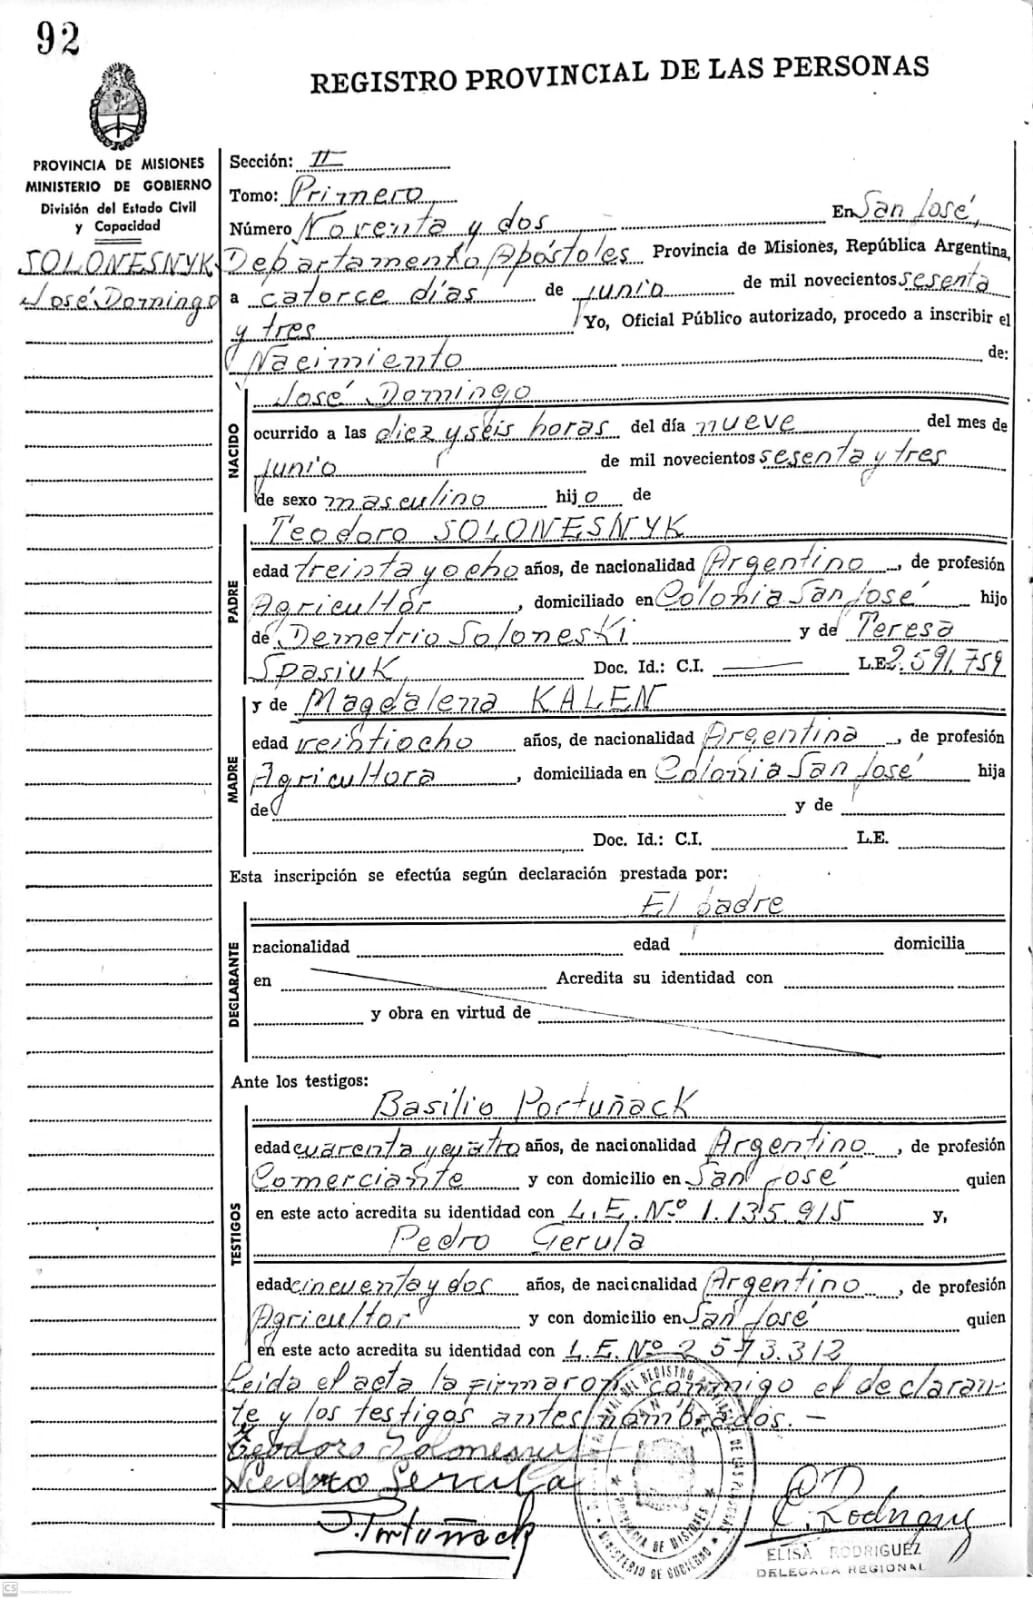 92
REGISTRO PROVINCIAL DE LAS PERSONAS
PROVINCIA DE MISIONES
MINISTERIO DE GOBIERNO
División del Estado Civil
y Capacidad
SOLONESNYK
José Domingo
Sección: II
Tomo: Primero
Número Noventa y dos En San José,
Departamento Apóstoles Provincia de Misiones, República Argentina,
a catorce días de junio de mil novecientos sesenta
y tres Yo, Oficial Público autorizado, procedo a inscribir el
Nacimiento de:
NACIDO
José Domingo
ocurrido a las diez y seis horas del día nueve del mes de
junio de mil novecientos sesenta y tres
de sexo masculino hijo de
PADRE
Teodoro SOLONESNYK
edad treinta y ocho años, de nacionalidad Argentino, de profesión
Agricultor, domiciliado en Colonia San José hijo
de Demetrio Soloneski y de Teresa
Spasiuk, Doc. Id.: C.I. L.E. 2.591.759
MADRE
y de Magdalena KALEN
edad veintiocho años, de nacionalidad Argentina, de profesión
Agricultora, domiciliada en Colonia San José hija
de y de
Doc. Id.: C.I. L.E.
Esta inscripción se efectúa según declaración prestada por:
DECLARANTE
El padre
racionalidad edad domicilia
en Acredita su identidad con
y obra en virtud de
Ante los testigos:
TESTIGOS
Basilio Portuñack
edad cuarenta y cuatro años, de nacionalidad Argentino, de profesión
Comerciante y con domicilio en San José quien
en este acto acredita su identidad con L.E. Nº 1.135.915 y,
Pedro Gerula
edad cincuenta y dos años, de nacionalidad Argentino, de profesión
Agricultor y con domicilio en San José quien
en este acto acredita su identidad con L.E. Nº 2573.312
Leida el acta la firmaron conmigo el declaran-
te y los testigos antes nombrados.-
Teodoro Solonesnyk
Pedro Gerula
Portuñack
E. Rodriguez
ELISA RODRIGUEZ
DELEGADA REGIONAL
PROVINCIA DE MISIONES
MINISTERIO DE GOBIERNO
CS